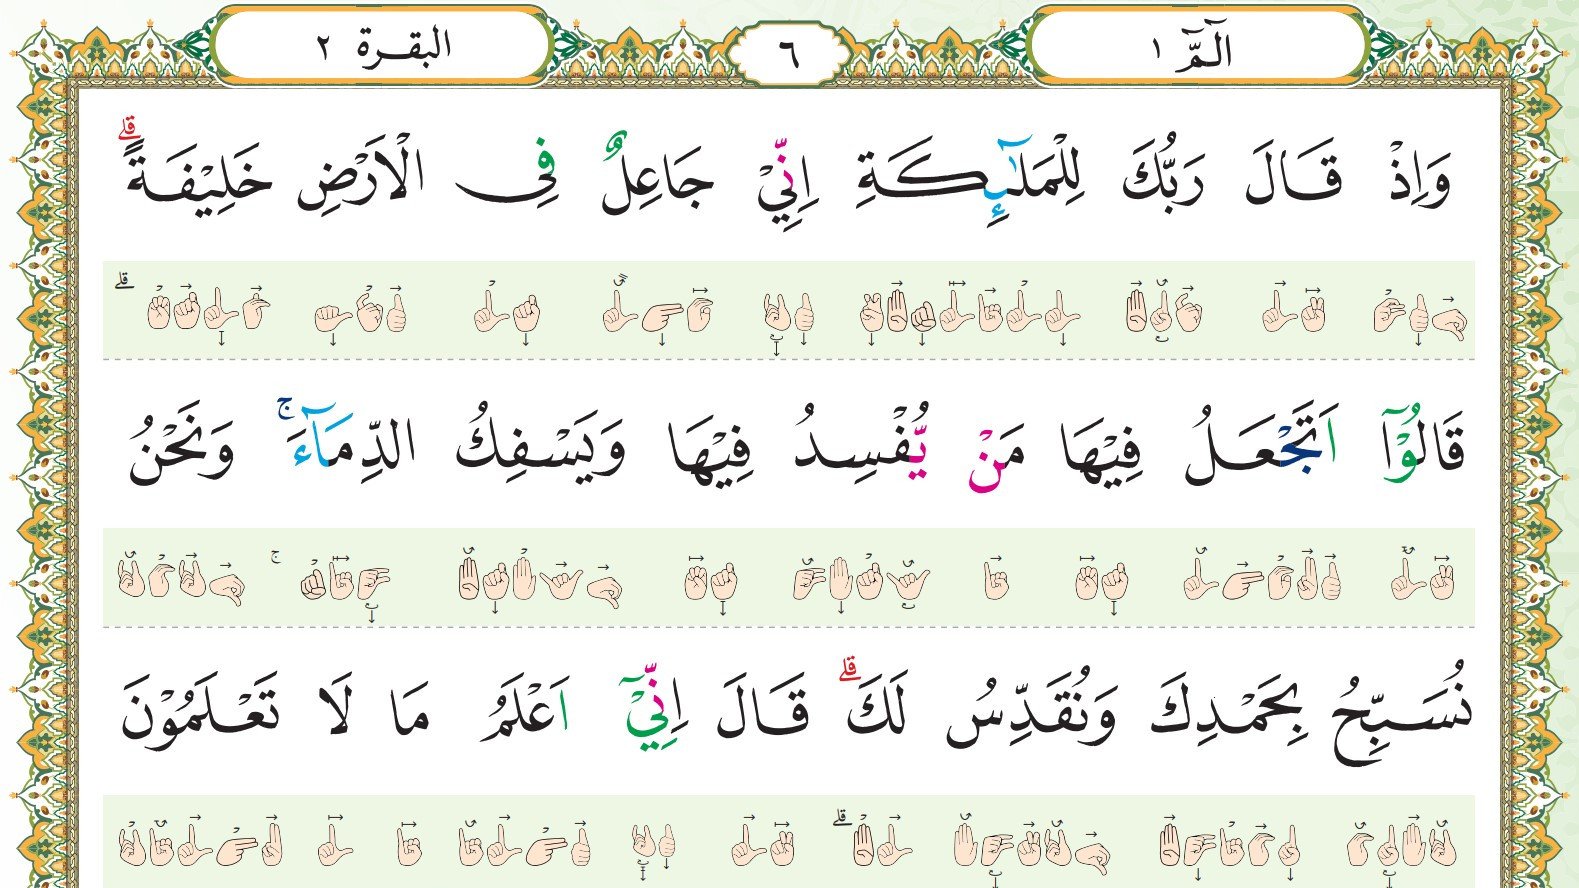 الٓمّٓ ١
٦
البقرة ٢
وَاِذْ قَالَ رَبُّكَ لِلْمَلٰٓئِكَةِ اِنِّيْ جَاعِلٌ فِى الْاَرْضِ خَلِيْفَةً ؕ قلے
قَالُوْٓا اَتَجْعَلُ فِيْهَا مَنْ يُّفْسِدُ فِيْهَا وَيَسْفِكُ الدِّمَآءَ ج وَنَحْنُ
نُسَبِّحُ بِحَمْدِكَ وَنُقَدِّسُ لَكَ قلے قَالَ اِنِّيْٓ اَعْلَمُ مَا لَا تَعْلَمُوْنَ